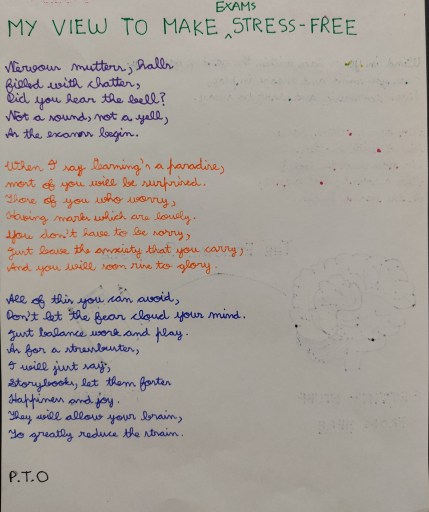 MY VIEW TO MAKE EXAMS STRESS-FREE
Nervous mutters, halls
filled with chatter,
Did you hear the bell?
Not a sound, not a yell,
As the exams begin.
When I say learning's a paradise,
most of you will be surprised.
Those of you who worry,
Having marks which are lovely.
You don't have to be sorry,
Just leave the anxiety that you carry,
And you will soon rise to glory.
All of this you can avoid,
Don't let the fear cloud your mind.
Just balance work and play.
As for a stressbuster,
I will just say;
Storybooks, let them foster
Happiness and joy.
They will allow your brain,
To greatly reduce the strain.
P.T.O